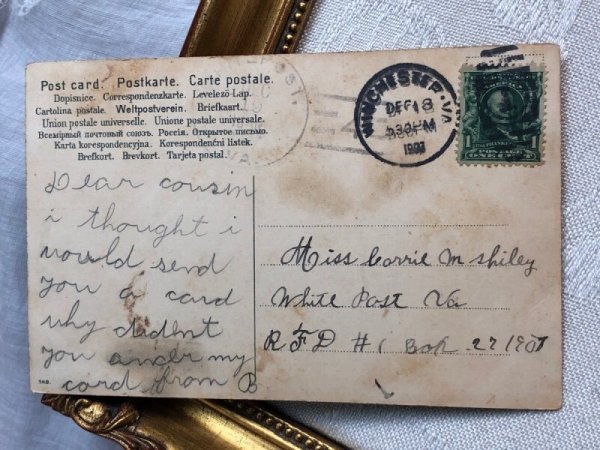 Post card. Postkarte. Carte postale.
Dopisnice. Correspondenzkarte. Levelező-Lap.
Cartolina postale. Weltpostverein. Briefkaart.
Union postale universelle. Unione postale universale.
Всемірный почтовый союзъ. Россія. Открытое письмо.
Karta korespondencyjna. Korespondenční lístek.
Brefkort. Brevkort. Tarjeta postal.
WINCHESTER, VA
DEC 18
530PM
1907
VA.
1 1
POSTAGE
ONE CENT
Dear cousin
i thought i
would send
you a card
why dident
you answer my
card from B
Miss Carrie M Shiley
White Post Va
RFD #1 Box 27 1907